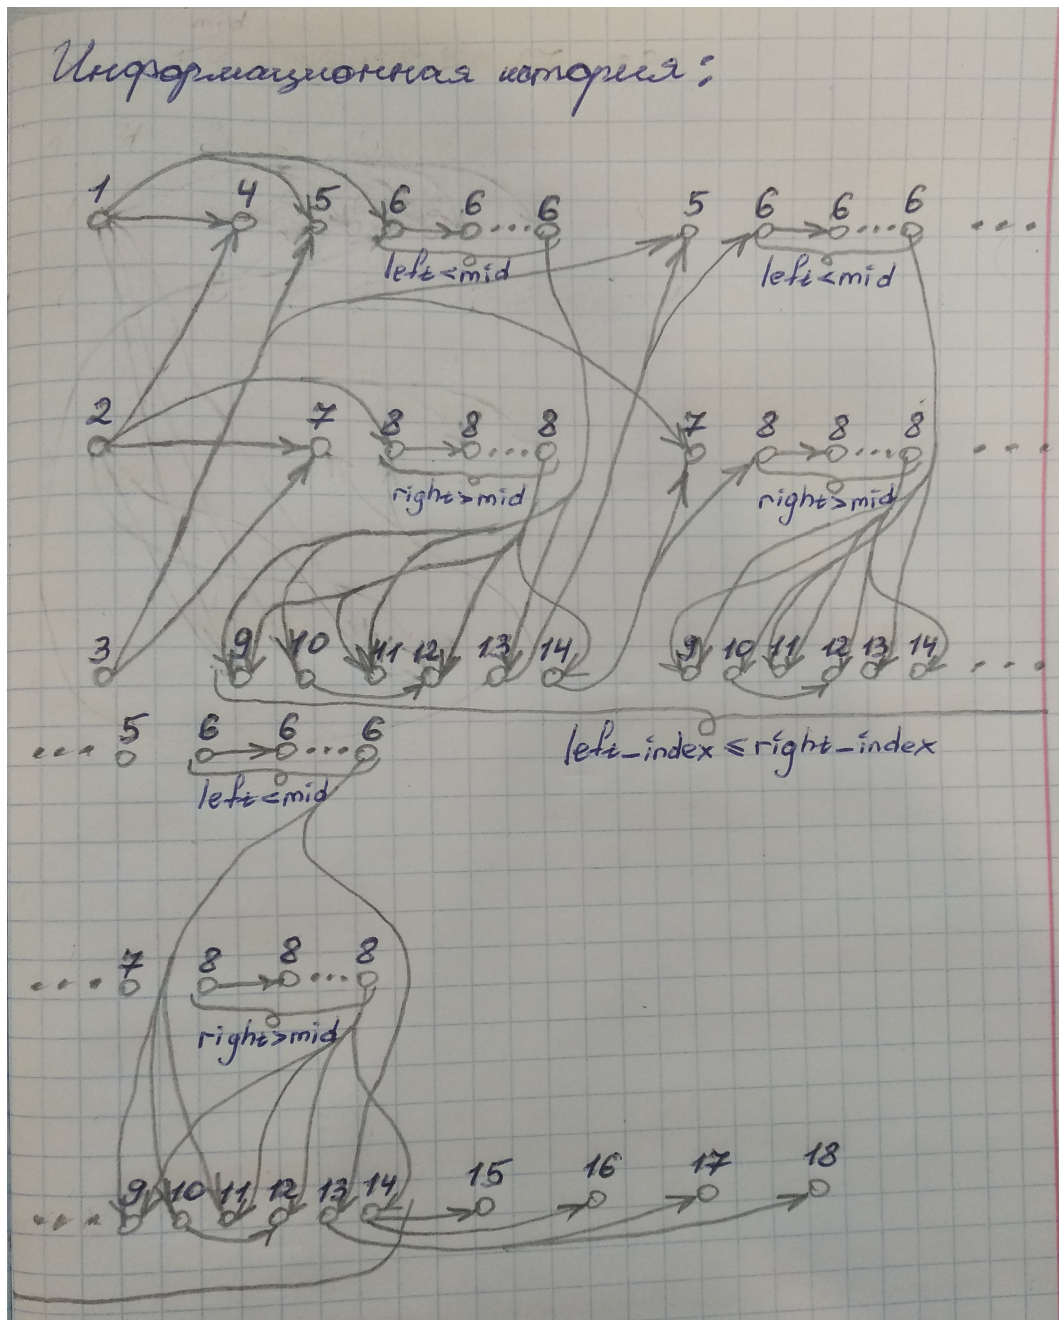 Информационная история:
1 4 5 6 6 ... 6 5 6 6 ... 6 ...
left<mid left<mid
2 7 8 8 ... 8 7 8 8 ... 8 ...
right>mid right>mid
3 9 10 11 12 13 14 9 10 11 12 13 14 ...
left_index ≤ right_index
... 5 6 6 ... 6
left<mid
... 7 8 8 ... 8
right>mid
... 9 10 11 12 13 14 15 16 17 18